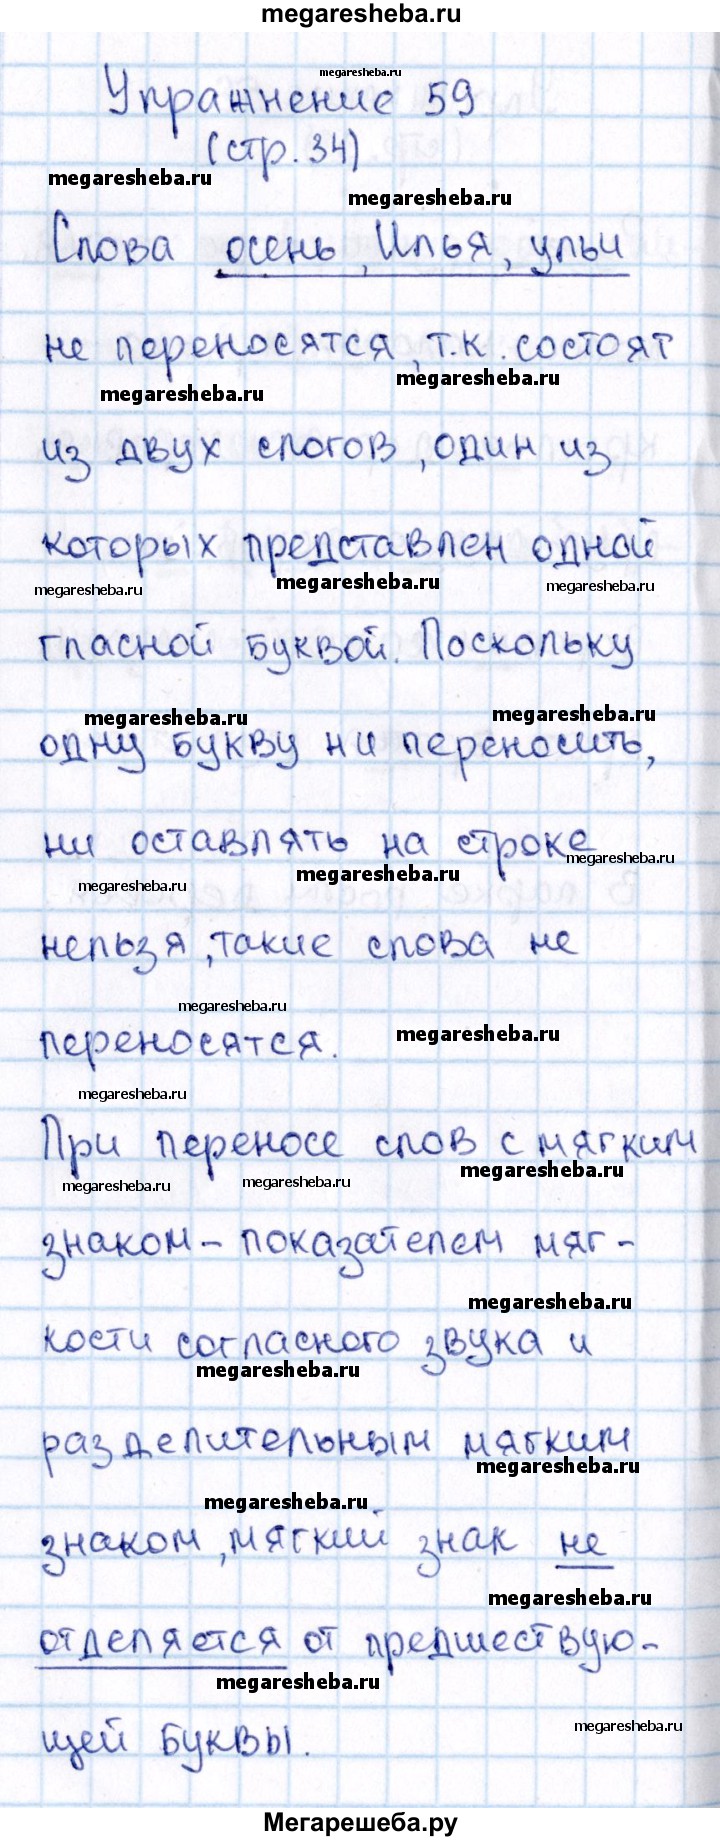 megaresheba.ru
megaresheba.ru
Упражнение 59
(стр. 34)
megaresheba.ru
megaresheba.ru
Слова осень, Илья, ульи
не переносятся, т.к. состоят
megaresheba.ru
megaresheba.ru
из двух слогов, один из
которых представлен одной
megaresheba.ru
megaresheba.ru
megaresheba.ru
гласной буквой. Поскольку
megaresheba.ru
megaresheba.ru
одну букву ни переносить,
ни оставлять на строке
megaresheba.ru
megaresheba.ru
megaresheba.ru
нельзя, такие слова не
megaresheba.ru
переносятся.
megaresheba.ru
megaresheba.ru
При переносе слов с мягким
megaresheba.ru
megaresheba.ru
megaresheba.ru
знаком - показателем мяг-
megaresheba.ru
кости согласного звука и
megaresheba.ru
разделительным мягким
megaresheba.ru
megaresheba.ru
знаком, мягкий знак не
megaresheba.ru
отделяется от предшествую-
megaresheba.ru
megaresheba.ru
щей буквы.
Мегарешеба.ру